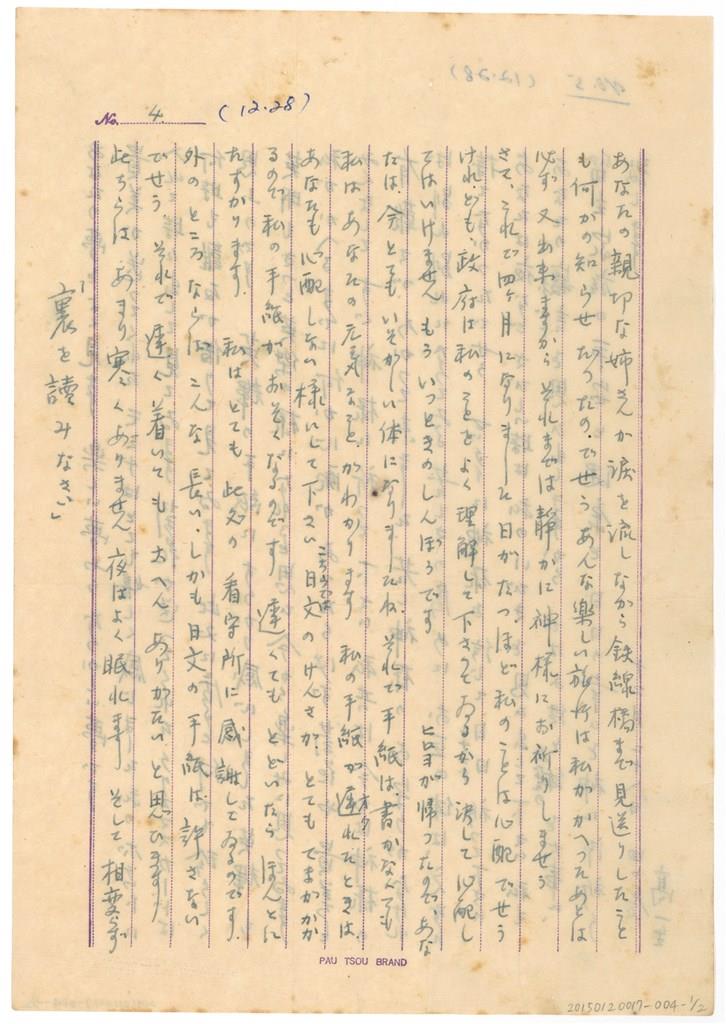 No. 4.
(12.28)
あなたの親切な姉さんが涙を流しながら鉄線橋まで見送りしたこと
も何かの知らせだったのでせう あんな楽しい旅行は私がかへったあとは
必ず又出来ますから それまでは静かに神様にお祈りしませう
さて、これで四ヶ月になりました 日がたつほど私のことは心配でせう
けれども、政府は私のことをよく理解して下さってゐるから決して心配し
てはいけません もういっときのしんぼうです ヒロヨが帰ったので、あな
たは、今とてもいそがしい体になりましたね、それで手紙は、書かなくても
私はあなたの元気なことがわかります 私の手紙が遅れたときは、
オク
あなたも心配しない様にして下さい 日文のけんさが、とてもてまがかか
こちらでは
るので私の手紙がおそくなるのです 遅くてもとどいたらほんとに
たすかります。 私はとても此処の看守所に感謝してゐるのです。
外のところならばこんな長い、しかも日文の手紙は許さない
でせう、それで遅く着いても大へんありがたいと思ひます
此ちらはあまり寒くありません 夜はよく眠れます そして相変らず
「裏を讀みなさい」
PAU TSOU BRAND
20150120017-004-1/2